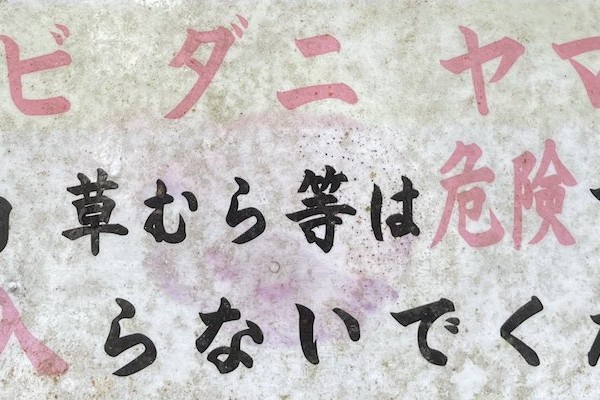 ビ ダ ニ ヤマ
草むら等は危険
入らないでく